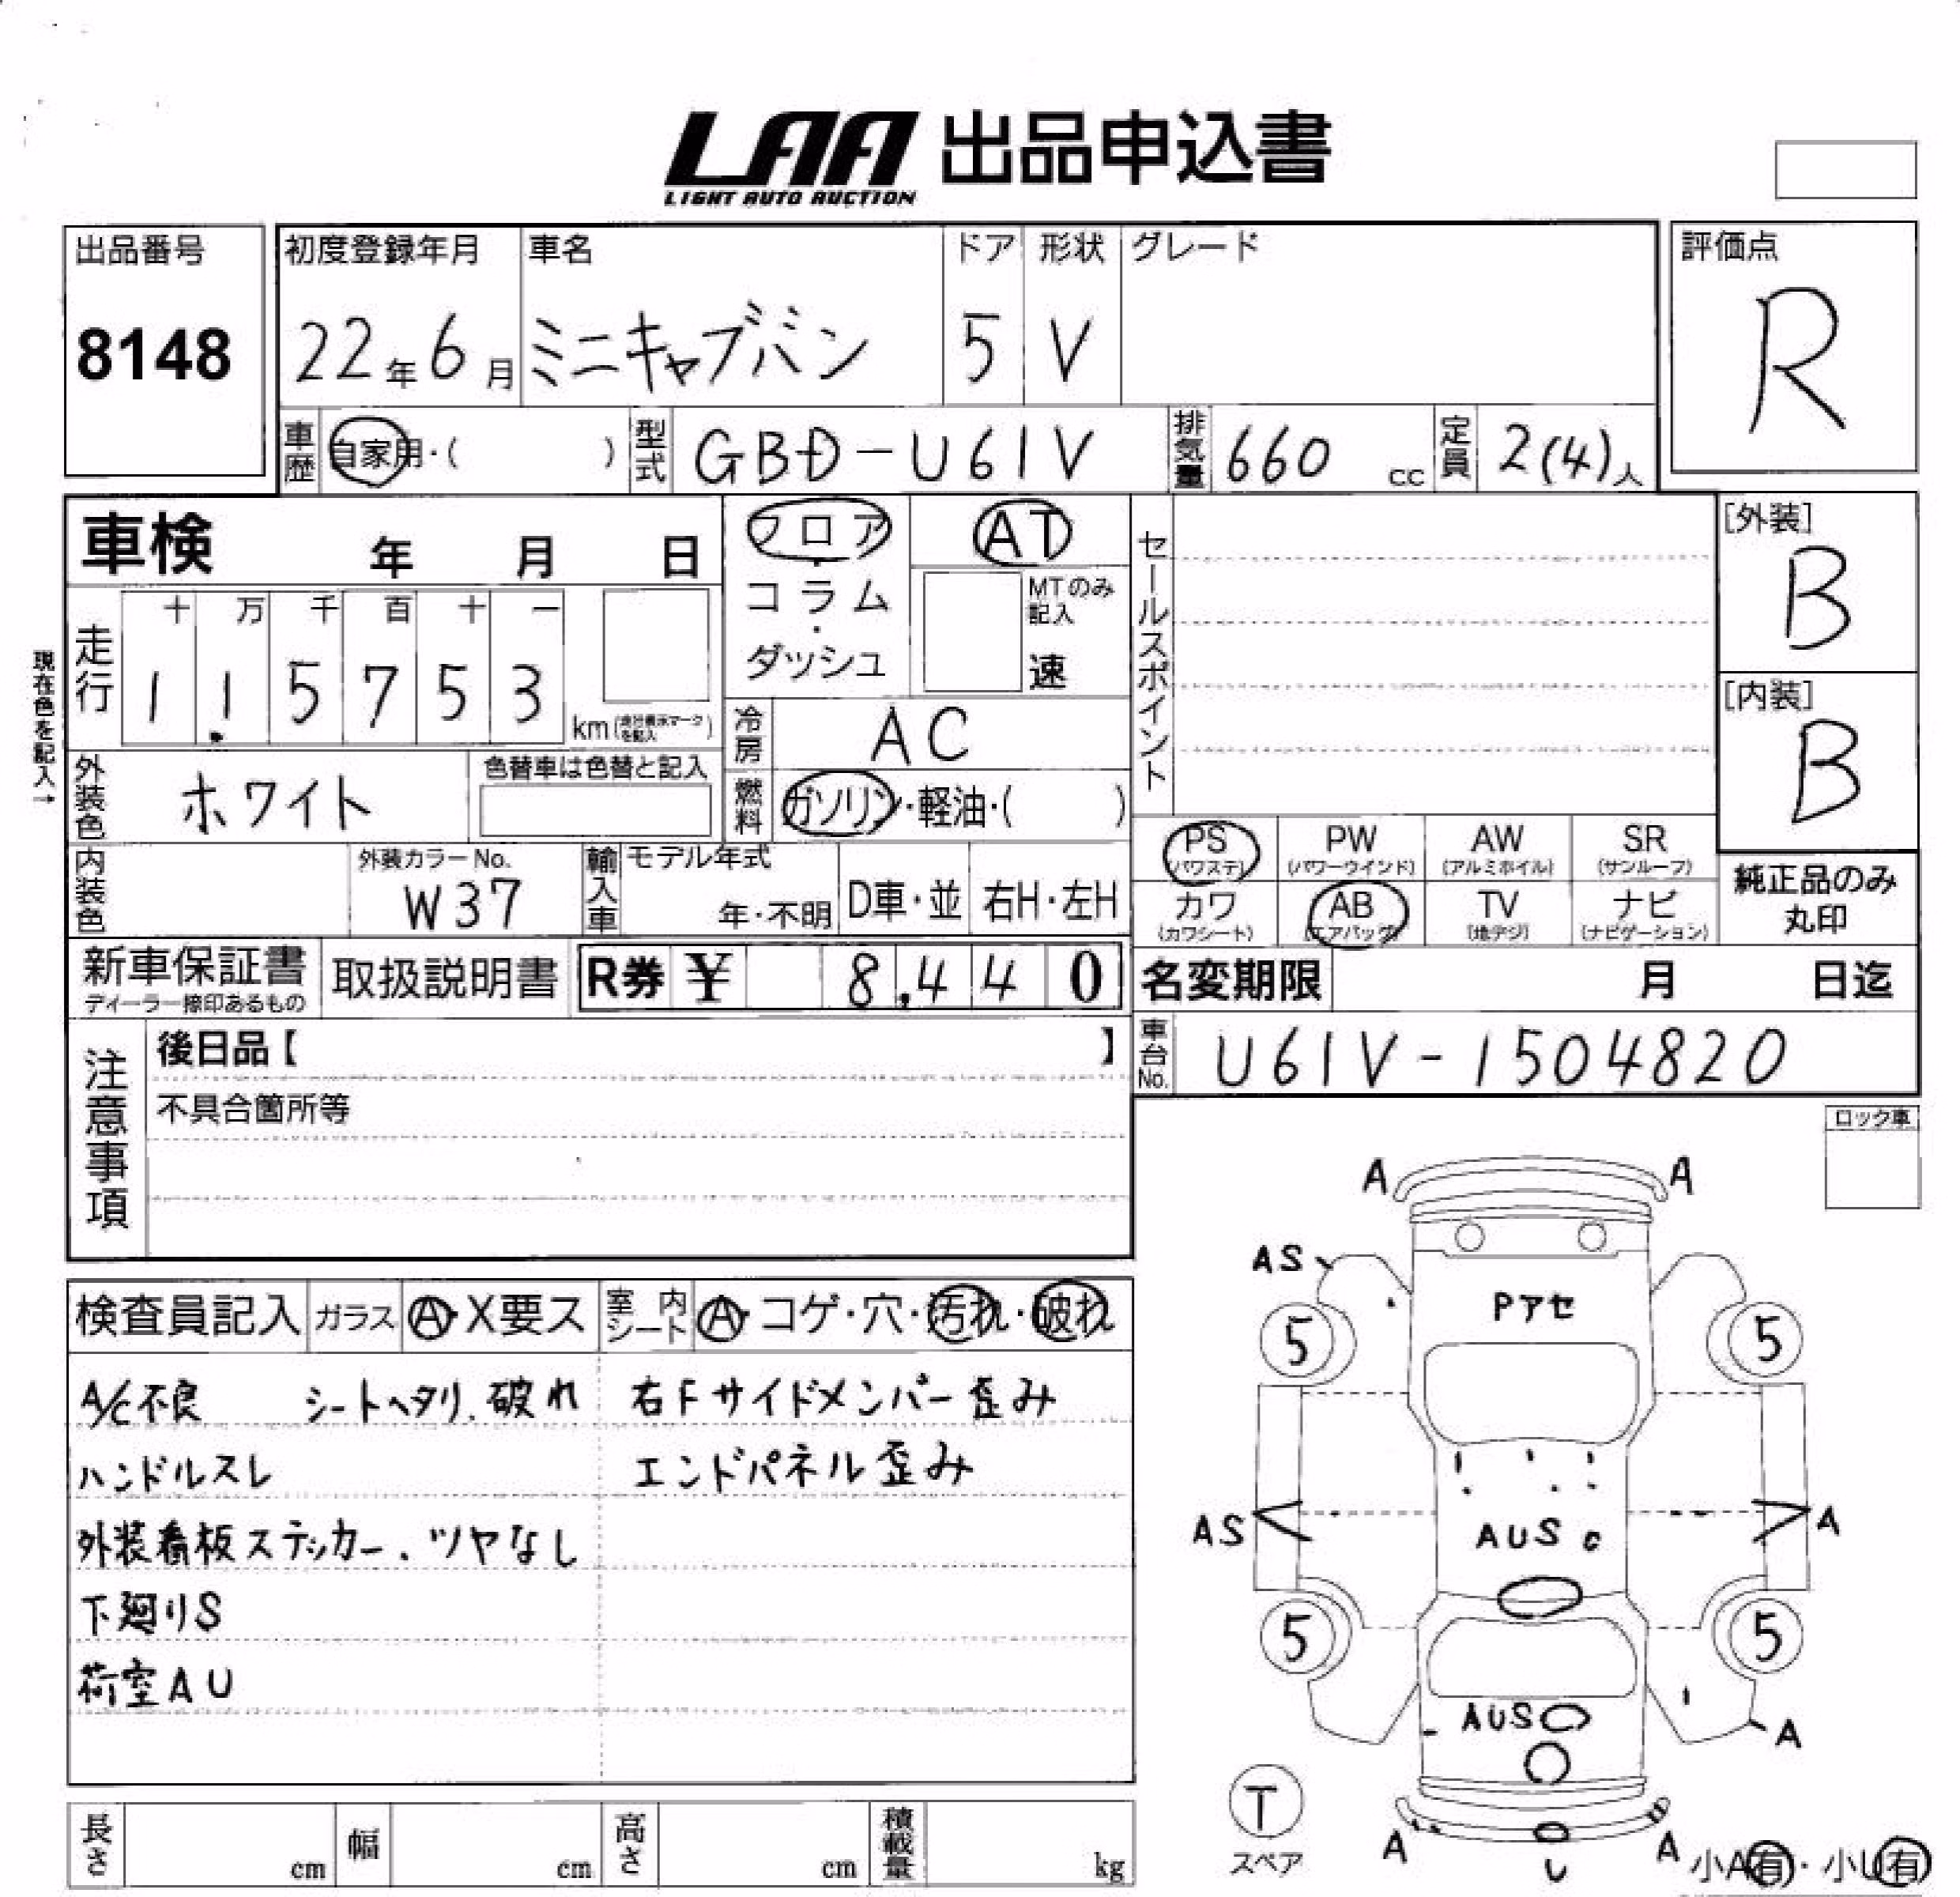 LAA 出品申込書
LIGHT AUTO AUCTION
出品番号
8148
初度登録年月
22年6月
車名
ミニキャブバン
ドア
5
形状
V
グレード
評価点
R
車歴 自家用・( )
型式 GBD-U61V
排気量 660 cc
定員 2(4)人
車検 年 月 日
フロア・コラム・ダッシュ
AT
MTのみ記入
速
セールスポイント
[外装]
B
[内装]
B
現在色を記入→
走行
十 万 千 百 十 一
1 1. 5 7 5 3
km(走行表示マークを記入)
冷房 AC
外装色 ホワイト
色替車は色替と記入
燃料 ガソリン・軽油・( )
PS (パワステ)
PW (パワーウインド)
AW (アルミホイル)
SR (サンルーフ)
カワ (カワシート)
AB (エアバッグ)
TV (地デジ)
ナビ (ナビゲーション)
純正品のみ
丸印
内装色
外装カラーNo.
W37
輸入車
モデル年式
年・不明
D車・並
右H・左H
新車保証書
ディーラー捺印あるもの
取扱説明書
R券 ¥ 8,440
名変期限 月 日迄
注意事項
後日品【 】
不具合箇所等
車台No. U61V-1504820
ロック車
検査員記入
ガラス A・X要ス
室内シート A・コゲ・穴・汚れ・破れ
A/C不良 シートヘタリ、破れ
ハンドルスレ
外装看板ステッカー、ツヤなし
下廻りS
荷室AU
右Fサイドメンバー歪み
エンドパネル歪み
A A
AS
Pアセ
5 5
AS AUS A
5 5
AUS
A
T
スペア
A U A
小A有・小U有
長さ cm
幅 cm
高さ cm
積載量 kg